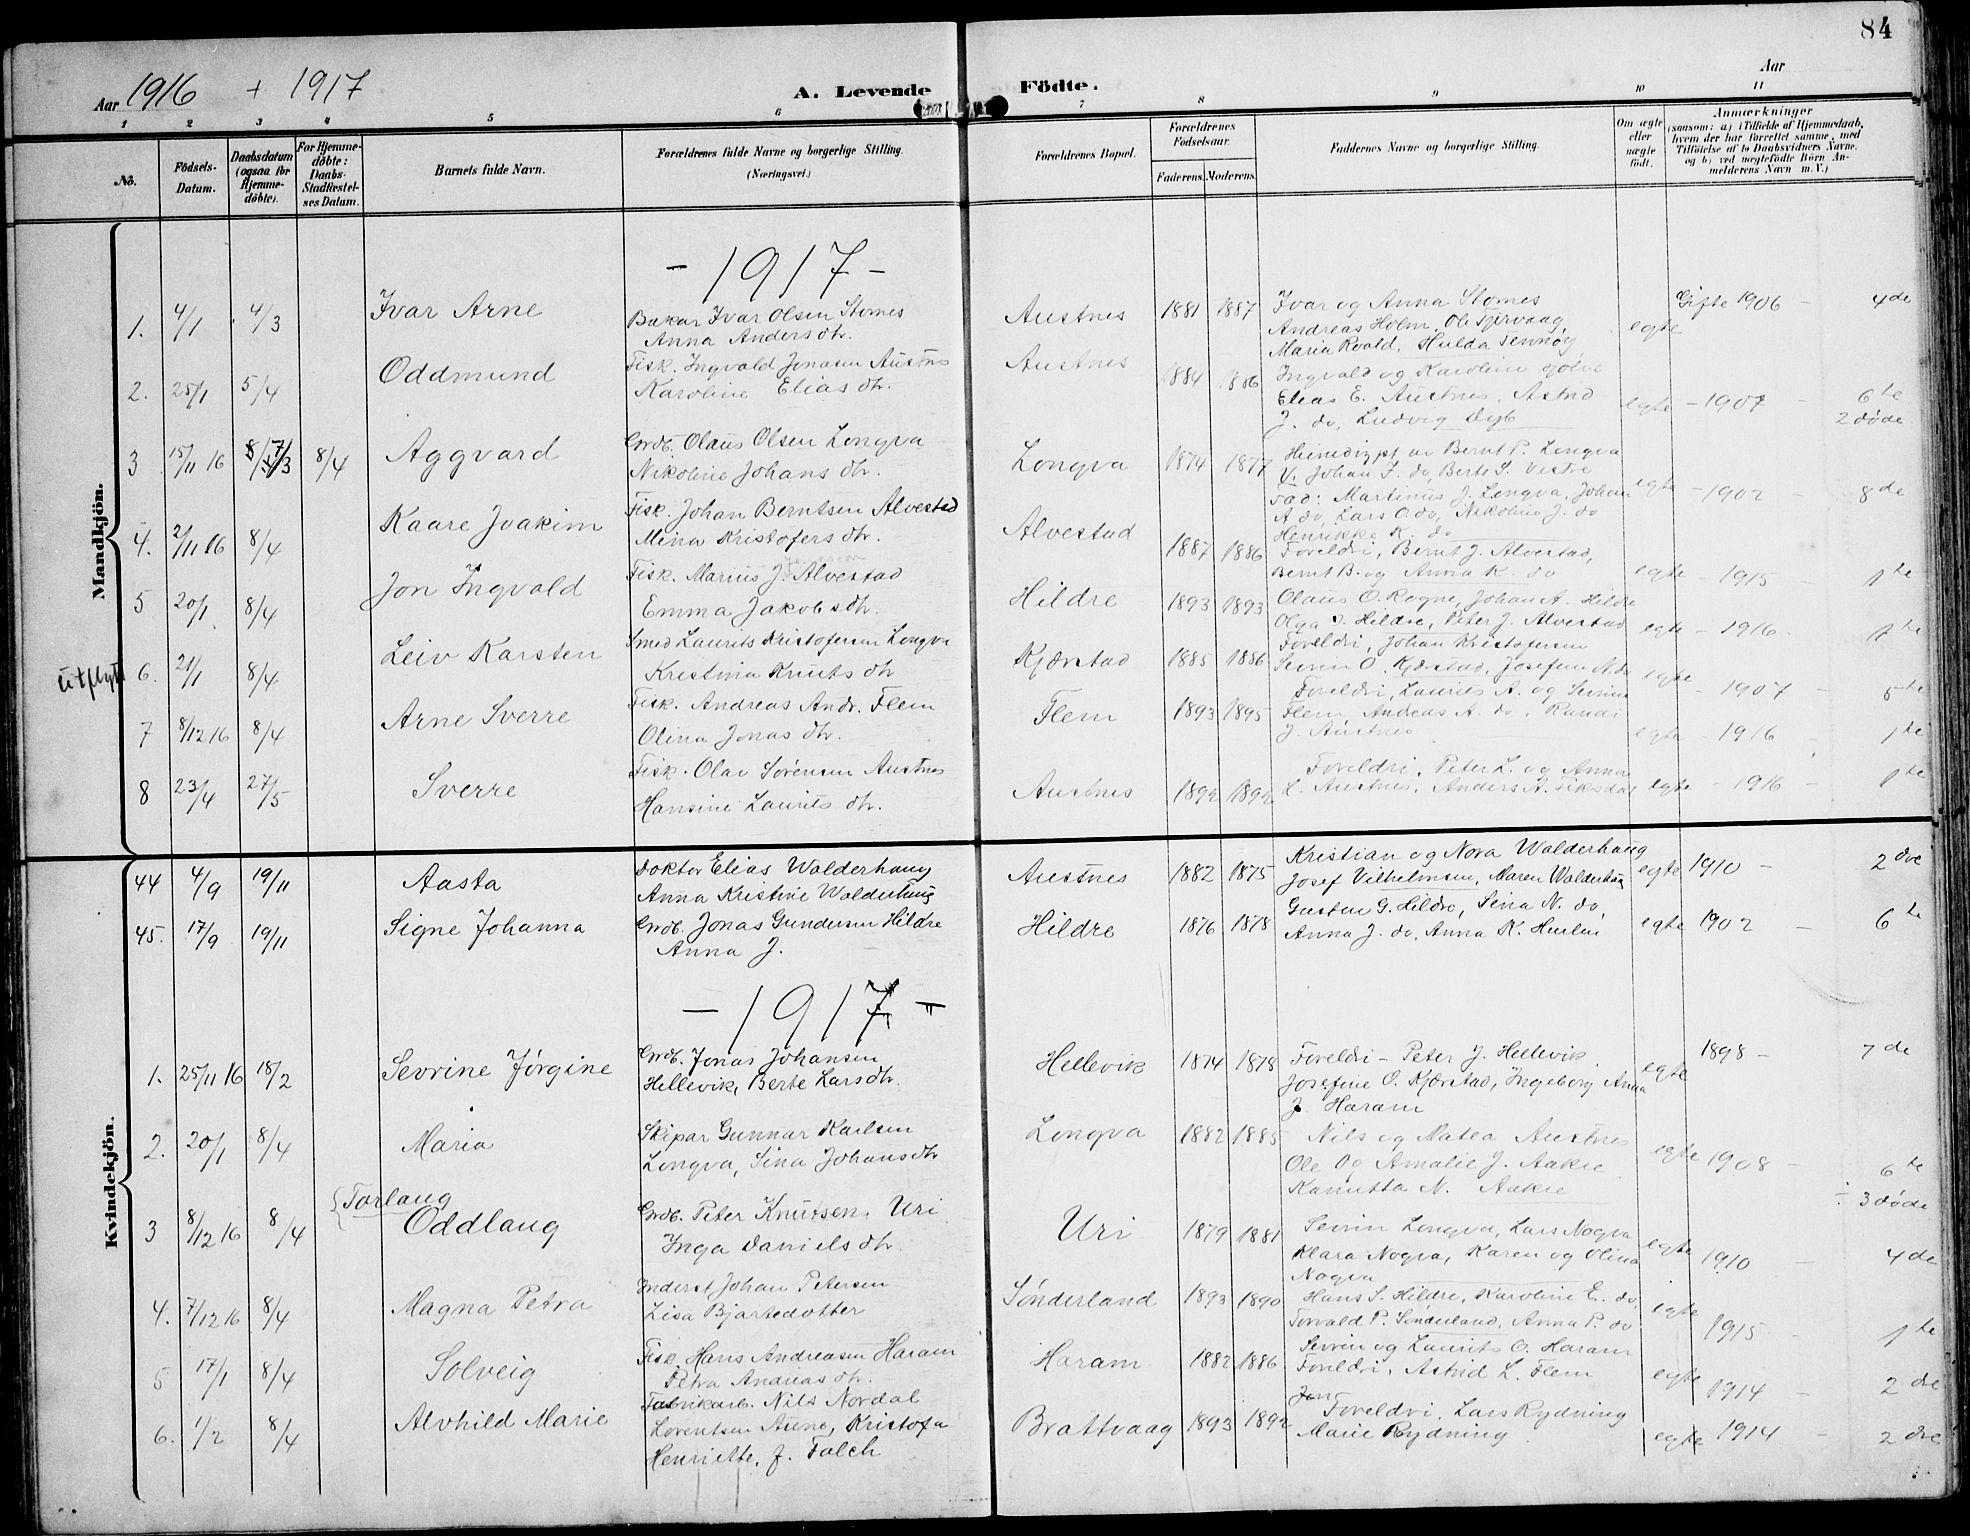 84
Aar 1916 + 1917
A. Levende Födte.
Aar
1 2 3 4 5 6 7 8 9 10 11
No.
Födsels-Datum.
Daabsdatum (ogsaa for Hjemme-döbte).
For Hjemme-döbte: Daabs-Stadfæstel-ses Datum.
Barnets fulde Navn.
Forældrenes fulde Navne og borgerlige Stilling. (Næringsvei.)
Forældrenes Bopæl.
Forældrenes Födselsaar.
Faderens. Moderens.
Faddernes Navne og borgerlige Stilling.
Om ægte eller uægte födt.
Anmærkninger
(saasom: a) i Tilfælde af Hjemmedaab,
hvem der har forrettet samme, med
Tilföielse af to Daabsvidners Navne,
og b) ved uægtefödte Börn An-
melderens Navn m. V.)
Mandkjön.
- 1917 -
1. 4/1 4/3 Ivar Arne
Bakar Ivar Olsen Stornes
Anna Anders dtr.
Austnes 1881 1887
Ivar og Anna Stornes
Andreas Holm, Ole
Maria Roald, Hulda Tennøy
egte Gifte 1906 - 4de
2. 25/1 5/4 Oddmund
Fisk. Ingvald Jonasen Austnes
Karoline Elias dtr.
Austnes 1884 1886
Ingvald og Karoline sjølve
Elias E. Austnes, Astrid
J. do, Ludvig Dyb
egte - 1907 - 6te
2 døde
3 15/11 16 8/4 Aggvard
Grdb. Olaus Olsen Longva
Nikoline Johans dtr.
Longva 1874 1877
Heimedøypt av Bernt P. Longva
V. Johan J. do, Berte S. Vestre
Fad: Martinus J. Longva, Johan
A do, Lars O. do, Nikoline J. do
Henrikke K. do
egte - 1902 - 8de
4. 2/11 16 8/4 Kaare Joakim
Fisk. Johan Berntsen Alvestad
Mina Kristofers dtr.
Alvestad 1887 1886
Foreldri, Bernt J. Alvestad,
Bernt B. og Anna K. do
egte - 1915 - 1te
5 20/1 8/4 Jon Ingvald
Fisk. Marius J. Alvestad
Emma Jakobs dtr.
Hildre 1893 1893
Olaus O. Rogne, Johan A. Hildre
Olga S. Hildre, Peter J. Alvestad
egte - 1916 - 1te
utflytt 6. 21/1 8/4 Leiv Karsten
Smed Laurits Kristofersen Longva
Kristina Knuts dtr
Kjærstad 1885 1886
Foreldri, Johan Kristofersen
Sevrin O. Kjærstad, Josefine N. do
egte - 1907 - 5te
7 8/12 16 8/4 Arne Sverre
Fisk. Andreas Andr. Flem
Olina Jonas dtr.
Flem 1893 1895
Foreldri, Laurits A. og Sevrine
Flem, Andreas A. do, Randi
J. Austnes
egte - 1916 - 1te
8 23/4 27/5 Sverre
Fisk. Olav Sørensen Austnes
Hansine Laurits dtr.
Austnes 1892 1892
Foreldri, Peter L. og Anna
L. Austnes, Anders A.
egte - 1916 - 1te
Kvindekjön.
44 4/9 19/11 Aasta
Doktor Elias Walderhaug
Anna Kristine Walderhaug
Austnes 1882 1875
Kristian og Nora Walderhaug
Josef Vilhelmsen, Maren Walderhaug
egte 1910 - 2dre
45. 17/9 19/11 Signe Johanna
Grdb. Jonas Gundersen Hildre
Anna J.
Hildre 1876 1878
Gusten G. Hildre, Sina N. do,
Anna J. do, Anna K. Hurlen
egte 1902 - 6te
- 1917 -
1. 25/11 16 18/2 Sevrine Jørgine
Grdb. Jonas Johansen
Hellevik, Berte Larsdtr.
Hellevik 1874 1878
Foreldri - Peter J. Hellevik
Josefine O. Kjærstad, Ingeborg Anna
J. Haram
egte 1898 - 7de
2. 20/1 8/4 Maria
Skipar Gunnar Karlsen
Longva, Sina Johansdtr
Longva 1882 1885
Nils og Matea Austnes
Ole og Amalie J. Aakre
N. Aakre
egte 1908 - 6te
÷ 3 døde
3 8/12 16 8/4 {Torlaug
Oddlaug
Grdb. Peter Knutsen Uri
Inga Daniels dtr.
Uri 1879 1881
Sevrin Longva, Lars Nogva
Klara Nogva, Karen og Olina
Nogva
egte 1910 - 4de
4. 7/12 16 8/4 Magna Petra
Inderst Johan Petersen
Lisa Bjartedotter
Sønderland 1893 1890
Hans S. Hildre, Karoline E. do,
Torvald P. Sønderland, Anna P. do
egte 1915 - 1te
5 17/1 8/4 Solveig
Fisk. Hans Andreasen Haram
Petra Andreas dtr.
Haram 1882 1886
Sevrin og Laurits O. Haram
Foreldri, Astrid L. Flem
egte 1914 - 2dre
6. 1/2 8/4 Alvhild Marie
Fabrikarb. Nils Nordal
Lorentsen Aune, Kristofa
Henriette, f. Falch
Brattvaag 1893 1892
Foreldri, Lars Rydning
Marie Rydning
egte 1914 - 2dre